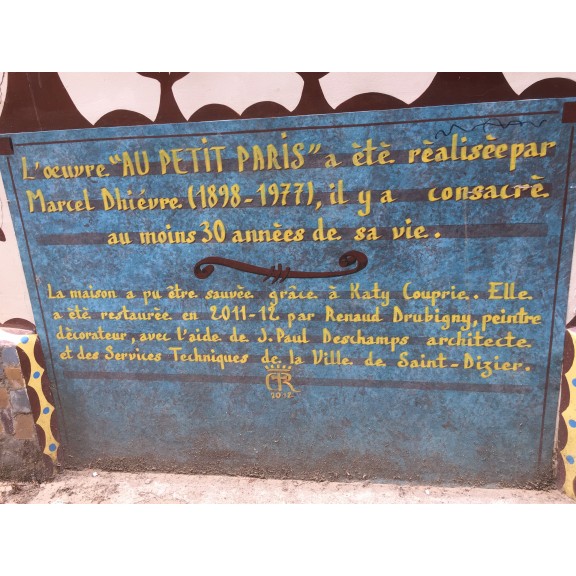 L'œuvre "AU PETIT PARIS" a ètè rèalisèe par
Marcel Dhiévre (1898-1977), il y a consacrè
au moins 30 annèes de sa vie.
La maison a pu être sauvèe grâce à Katy Couprie. Elle
a ètè restaurèe en 2011-12 par Renaud Drubigny, peintre
dècorateur, avec l'aide de J. Paul Deschamps architecte
et des Services Techniques de la Ville de Saint-Dizier.
2012